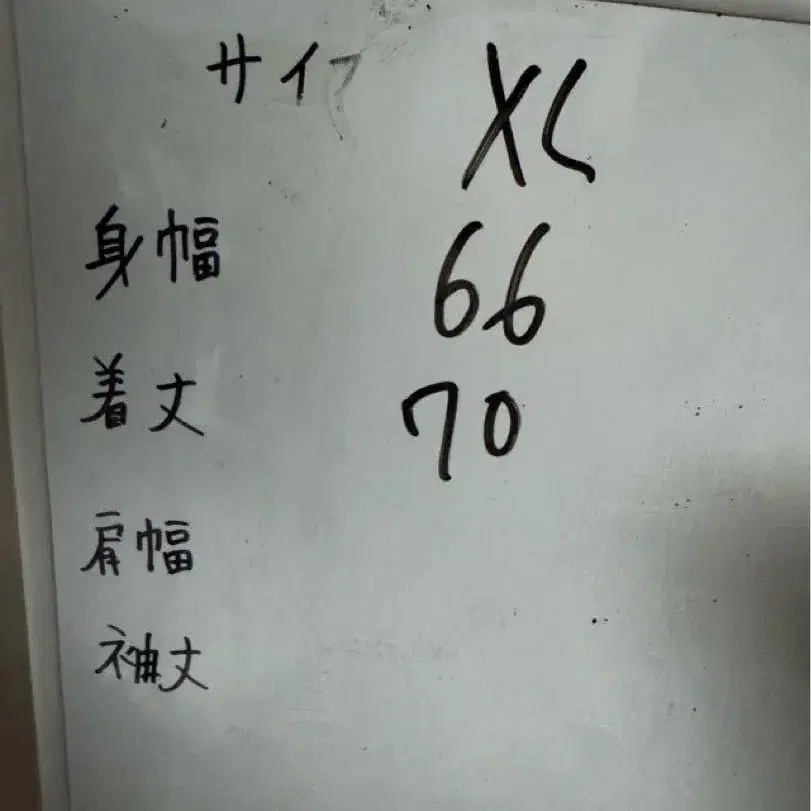 サイズ XL
身幅 66
着丈 70
肩幅
袖丈